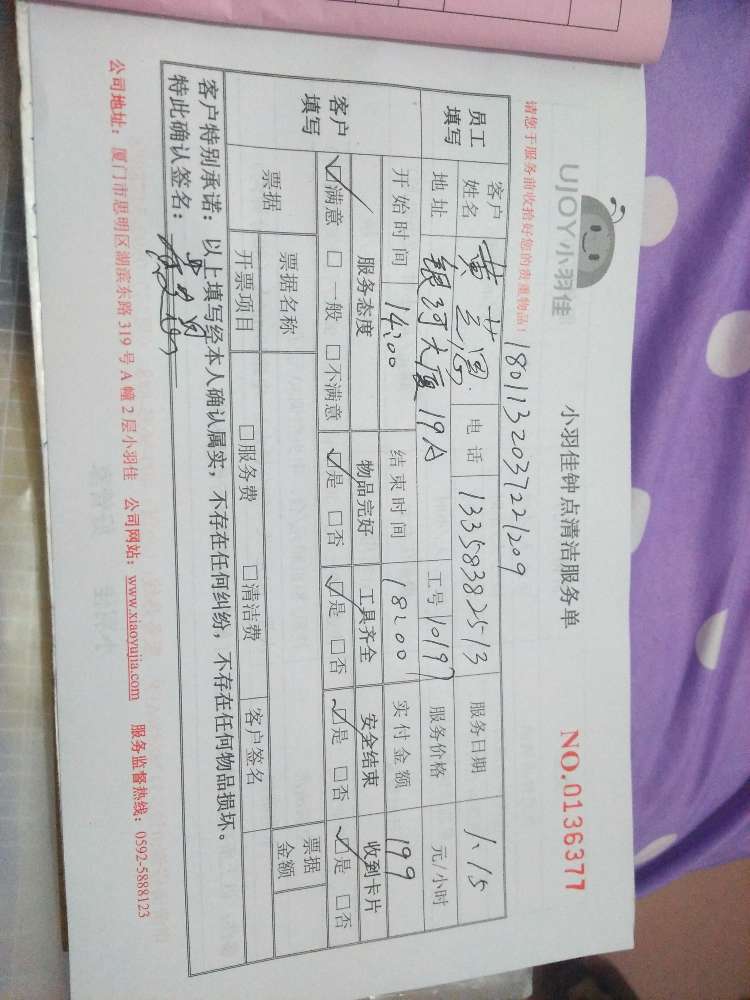 UJOY小羽佳
小羽佳钟点清洁服务单
NO.0136377
请您于服务前收拾好您的贵重物品!
1801132037221209
员工填写 客户姓名 黄 电话 13358382513 服务日期 1.15
地址 银河大厦19A 工号 10197 服务价格 元/小时
开始时间 14:00 结束时间 18:00 实付金额 199
客户填写 服务态度 物品完好 工具齐全 安全结束 收到卡片
☑满意 □一般 □不满意 ☑是 □否 ☑是 □否 ☑是 □否 ☑是 □否
票据 票据名称 票据金额
开票项目 □服务费 □清洁费 客户签名
客户特别承诺:以上填写经本人确认属实,不存在任何纠纷,不存在任何物品损坏。
特此确认签名:
公司地址:厦门市思明区湖滨东路319号A幢2层小羽佳 公司网站:www.xiaoyujia.com 服务监督热线:0592-5888123